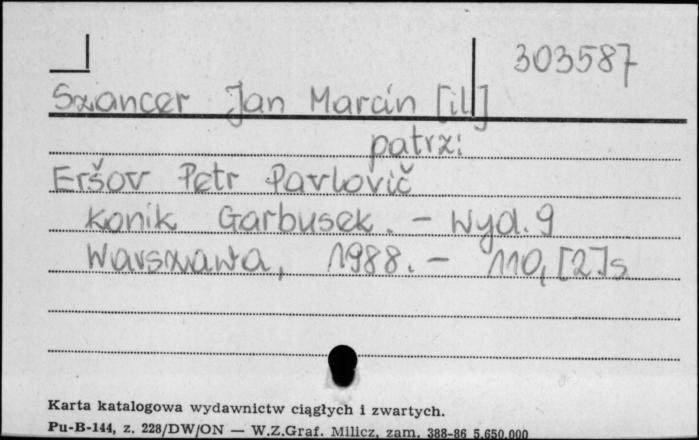 303587
Szancer Jan Marcin [il]
patrz:
Eršov Petr Pavlovič
Konik Garbusek. - Wyd. 9
Warszawa, 1988. - 110, [2] s
Karta katalogowa wydawnictw ciągłych i zwartych.
Pu-B-144, z. 228/DW/ON — W.Z.Graf. Milicz, zam. 388-86 5.650.000